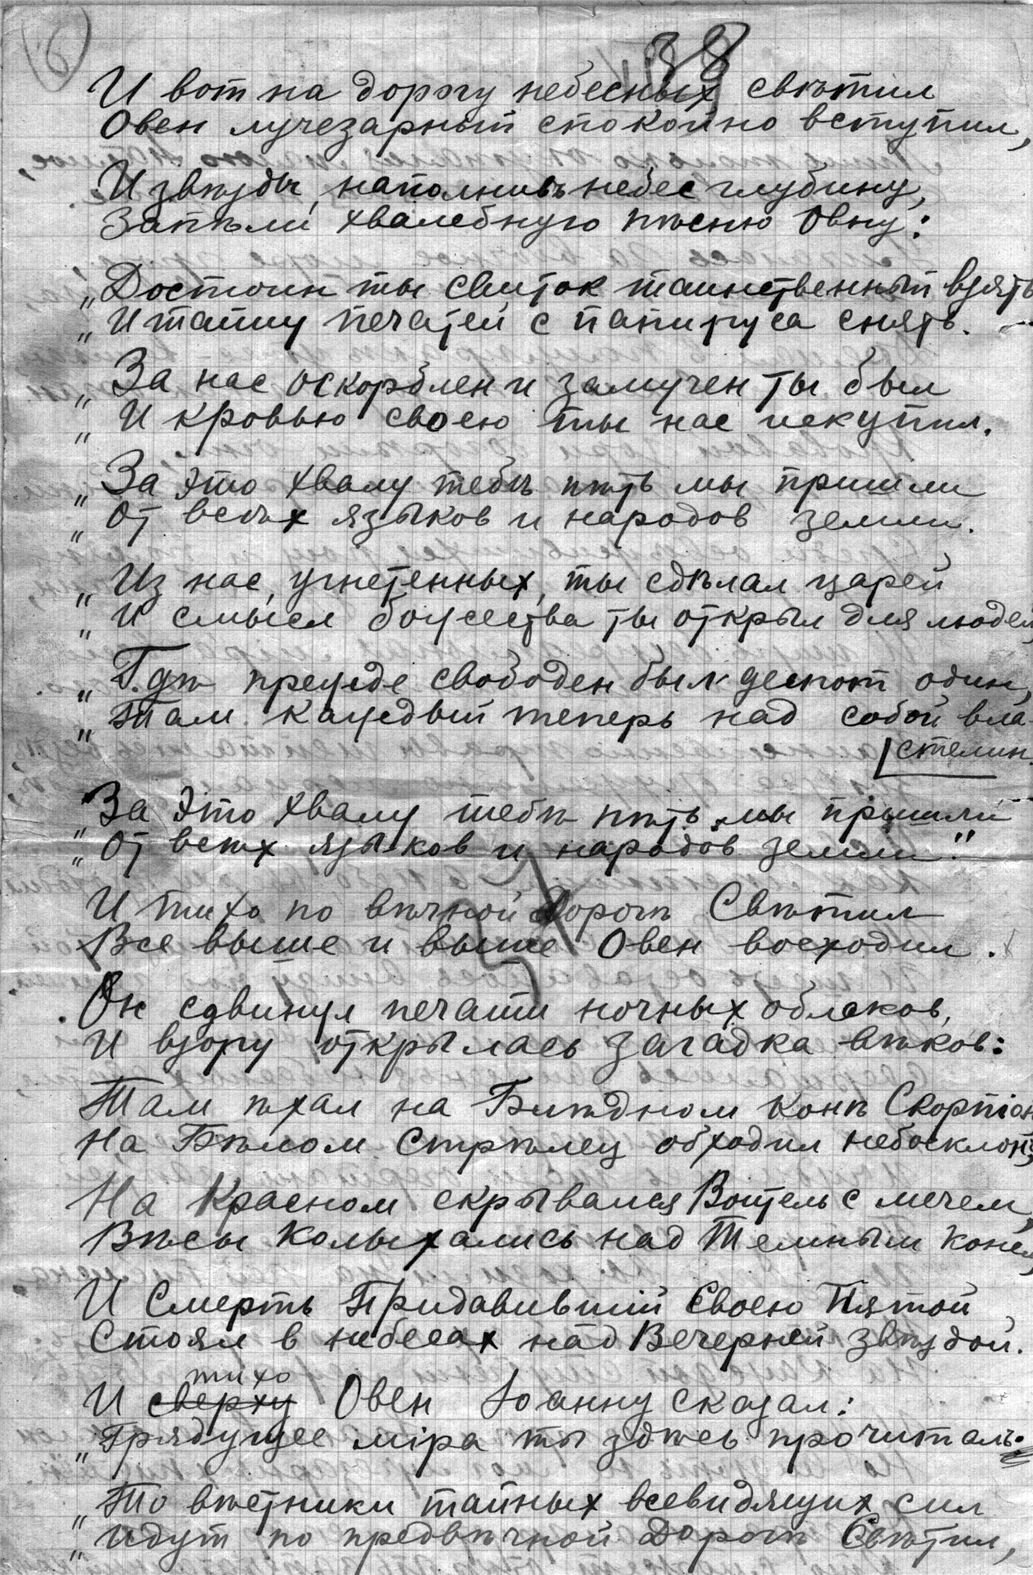 6
38
И вот на дорогу небесных свѣтил
Овен лучезарный спокойно вступил,
И звѣзды, наполнивъ небес глубину,
Запѣли хвалебную пѣсню Овну:
„Достоин ты свиток таинственный взять
„И тайну печатей с папируса снять.
„За нас оскорблен и замучен ты был
„И кровью своею ты нас искупил.
„За это хвалу тебѣ пѣть мы пришли
„От всѣх языков и народов земли.
„Из нас, угнетенных, ты сдѣлал царей
„И смысл божества ты открыл для людей
„Гдѣ прежде свободен был деспот один,
„Там каждый теперь над собой вла-
стелин.
„За это хвалу тебѣ пѣть мы пришли
„От всѣх языков и народов земли."
И тихо по вѣчной Дорогѣ Свѣтил
Все выше и выше Овен восходил.
Он сдвинул печати ночных облаков,
И взору открылась загадка вѣков:
Там ѣхал на Блѣдном Конѣ Скорпіон
На Бѣлом Стрѣлец обходил небосклон,
На Красном скрывался Воитель с мечем,
Вѣсы колыхались над Темным Конем,
И Смерть Придавившій Своею Пятой
Стоял в небесах над Вечерней звѣздой.
И сверху тихо Овен Іоанну сказал:
„Грядущее міра ты здѣсь прочиталъ:
„То вѣстники тайных всевидящих сил
„Идут по предвѣчной Дорогѣ Свѣтил,